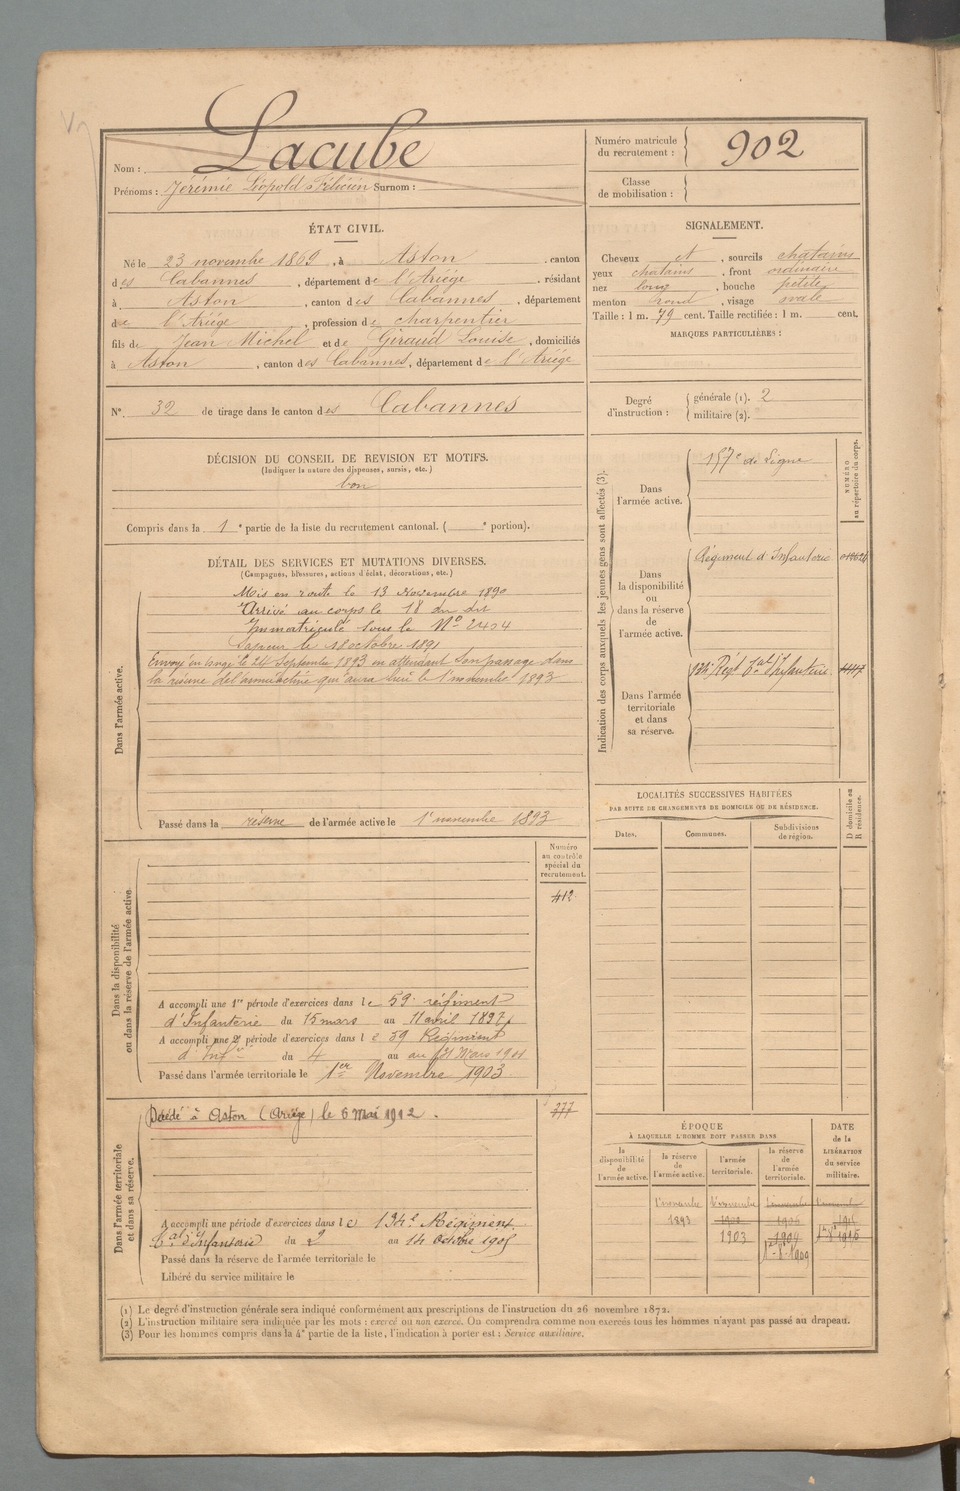 Nom : Lacube
Prénoms : Jérémie Léopold Félicien Surnom :
Numéro matricule du recrutement : 902
Classe de mobilisation :
ÉTAT CIVIL.
Né le 23 novembre 1869, à Aston, canton
des Cabannes, département de l'Ariége, résidant
à Aston, canton des Cabannes, département
de l'Ariége, profession de charpentier
fils de Jean Michel et de Giraud Louise, domiciliés
à Aston, canton des Cabannes, département de l'Ariége
N°. 32 de tirage dans le canton des Cabannes
SIGNALEMENT.
Cheveux et, sourcils chatains
yeux chatains, front ordinaire
nez long, bouche petite
menton rond, visage ovale
Taille : 1 m. 79 cent. Taille rectifiée : 1 m. cent.
MARQUES PARTICULIÈRES :
Degré d'instruction :
générale (1). 2
militaire (2).
DÉCISION DU CONSEIL DE REVISION ET MOTIFS.
(Indiquer la nature des dispenses, sursis, etc.)
bon
Compris dans la 1e partie de la liste du recrutement cantonal. ( e portion).
DÉTAIL DES SERVICES ET MUTATIONS DIVERSES.
(Campagnes, blessures, actions d'éclat, décorations, etc.)
Dans l'armée active.
Mis en route le 13 Novembre 1890
Arrivé au corps le 18 du dit
Immatriculé sous le No 2404
Sapeur le 18 octobre 1891
Envoyé en congé le 24 Septembre 1893 en attendant son passage dans
la réserve de l'armée active qui aura lieu le 1er novembre 1893
Passé dans la réserve de l'armée active le 1er novembre 1893
Indication des corps auxquels les jeunes gens sont affectés (3).
NUMÉRO au répertoire du corps.
Dans l'armée active.
157e de Ligne
Dans la disponibilité ou dans la réserve de l'armée active.
Régiment d'Infanterie
Dans l'armée territoriale et dans sa réserve.
134e Régt tal d'Infanterie
LOCALITÉS SUCCESSIVES HABITÉES
PAR SUITE DE CHANGEMENTS DE DOMICILE OU DE RÉSIDENCE.
Dates.
Communes.
Subdivisions de région.
D domicile ou R résidence.
Dans la disponibilité ou dans la réserve de l'armée active
Numéro au contrôle spécial du recrutement.
412
A accompli une 1re période d'exercices dans le 59e régiment
d'Infanterie du 15 mars au 11 avril 1897
A accompli une 2e période d'exercices dans le 59 Régiment
d'Infie du 4 au
Passé dans l'armée territoriale le 1er Novembre 1903
Dans l'armée territoriale et dans sa réserve.
Décédé à Aston (Ariége) le 6 Mai 1912.
777
A accompli une période d'exercices dans le 134e Régiment
tal d'Infanterie du 2 au 14 Octobre 1905
Passé dans la réserve de l'armée territoriale le
Libéré du service militaire le
ÉPOQUE
À LAQUELLE L'HOMME DOIT PASSER DANS
la disponibilité de l'armée active.
la réserve de l'armée active.
l'armée territoriale.
la réserve de l'armée territoriale.
DATE de la LIBÉRATION du service militaire.
1er novembre 1893
1903
(1) Le degré d'instruction générale sera indiqué conformément aux prescriptions de l'instruction du 26 novembre 1872.
(2) L'instruction militaire sera indiquée par les mots : exercé ou non exercé. On comprendra comme non exercés tous les hommes n'ayant pas passé au drapeau.
(3) Pour les hommes compris dans la 4e partie de la liste, l'indication à porter est : Service auxiliaire.